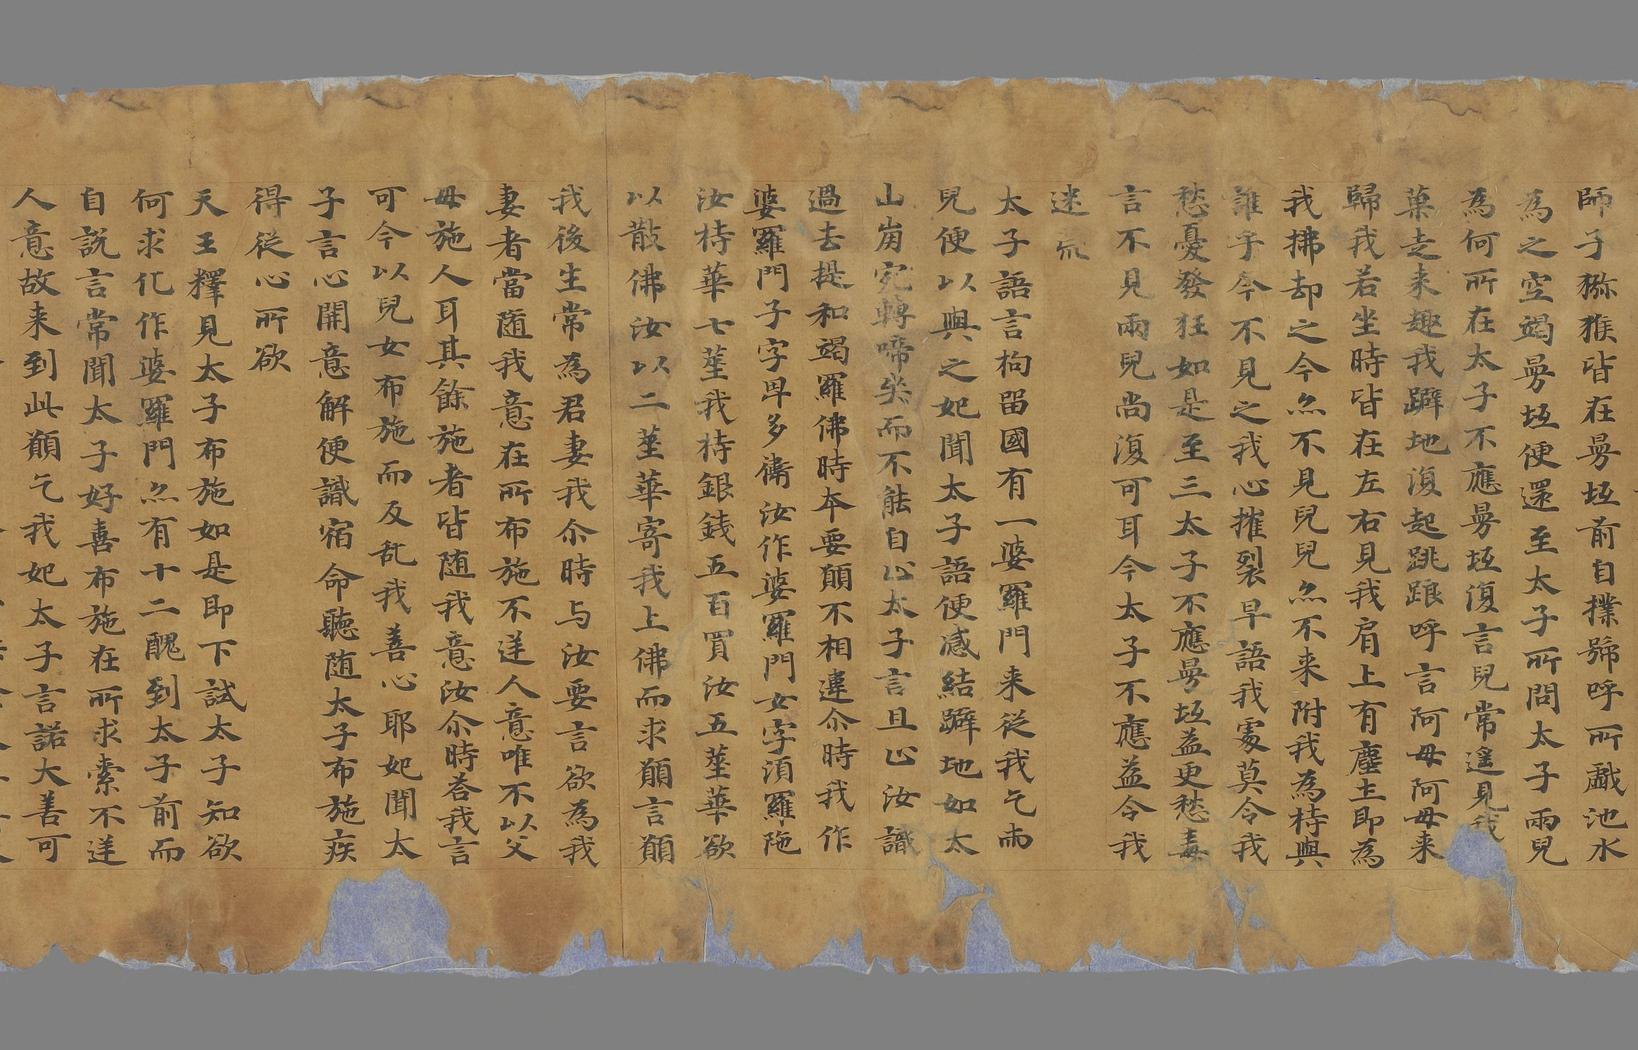 師子獼猴皆在㝵坻前自撲號呼所戲池水
為之空竭㝵坻便還至太子所問太子兩兒
為何所在太子不應㝵坻復言兒常遥見我
菓走来趣我躃地復起跳踉呼言阿母阿母来
歸我若坐時皆在左右見我肩上有塵土即為
我拂却之今亦不見兒兒亦不来附我為持與
誰乎今不見之我心摧裂早語我處莫令我
愁憂發狂如是至三太子不應㝵坻益更愁毒
言不見兩兒尚復可耳今太子不應益令我
迷荒
太子語言枸留國有一婆羅門来從我乞兩
兒便以與之妃聞太子語便感結躃地如太
山崩宛轉啼哭而不能自止太子言且止汝識
過去提和竭羅佛時夲要願不相違尒時我作
婆羅門子字鞞多衛汝作婆羅門女字湏羅陁
汝持華七莖我持銀錢五百買汝五莖華欲
以散佛汝以二莖華寄我上佛而求願言願
我後生常為君妻我尒時与汝要言欲為我
妻者當随我意在所布施不逆人意唯不以父
母施人耳其餘施者皆随我意汝尒時荅我言
可今以兒女布施而反乱我善心耶妃聞太
子言心開意解便識宿命聽随太子布施疾
得從心所欲
天王釋見太子布施如是即下試太子知欲
何求化作婆羅門亦有十二醜到太子前而
自說言常聞太子好喜布施在所求索不逆
人意故来到此願乞我妃太子言諾大善可